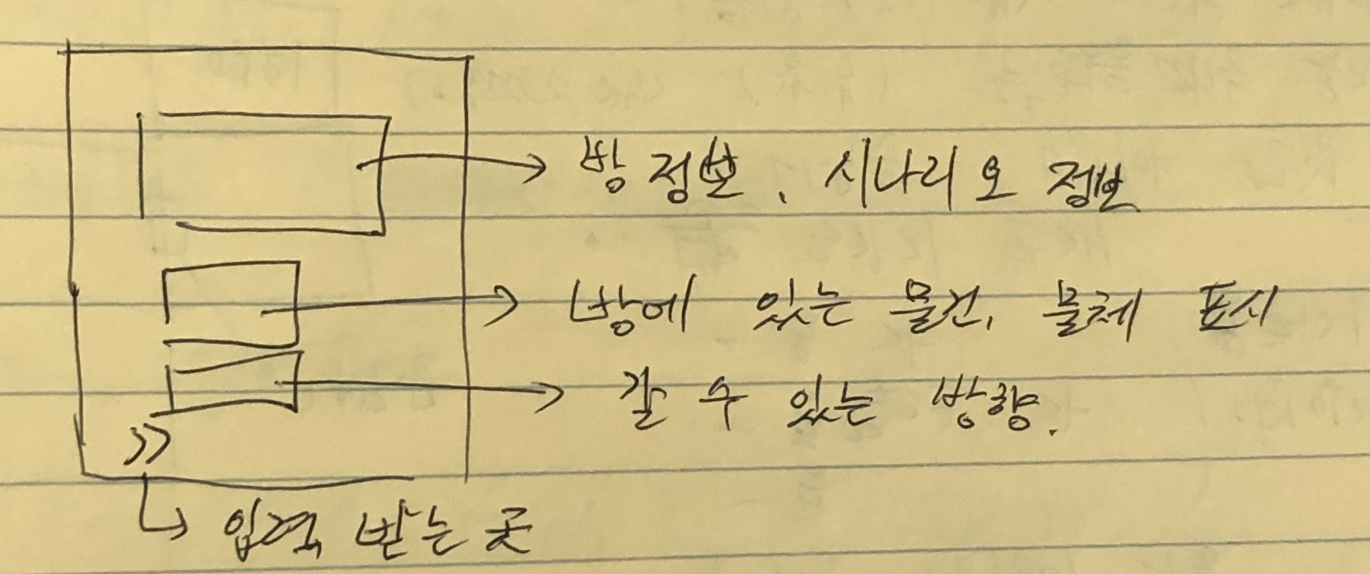 방 정보, 시나리오 정보
방에 있는 물건, 물체 표시
갈 수 있는 방향.
>>
입력 받는 곳